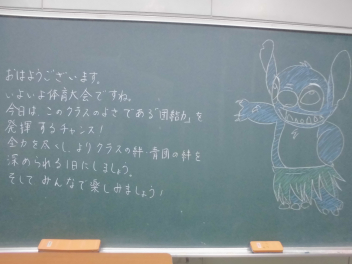 おはようございます。
いよいよ体育大会ですね。
今日は、このクラスのよさである「団結力」を
発揮するチャンス!
全力を尽くし、よりクラスの絆・青団の絆を
深められる1日にしましょう。
そして みんなで楽しみましょう!